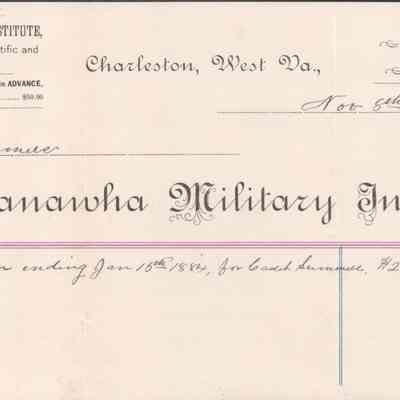 STITUTE,
tific and
in ADVANCE,
..... $50.00
Charleston, West Va.,
Nov 8th
anawha Military In
ending Jan 15th 1884, for Cadet Summers, #2